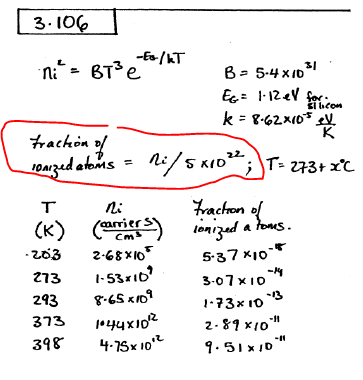 3.106
ni² = BT³ e^-EG/kT
B = 5.4x10^31
EG = 1.12eV for silicon
k = 8.62x10^-5 eV/K
fraction of ionized atoms = ni / 5x10^22 ; T = 273 + x°C
T (K) ni (carriers/cm³) fraction of ionized atoms.
203 2.68x10^5 5.37x10^-18
273 1.53x10^9 3.07x10^-14
293 8.65x10^9 1.73x10^-13
373 1.44x10^12 2.89x10^-11
398 4.75x10^12 9.51x10^-11